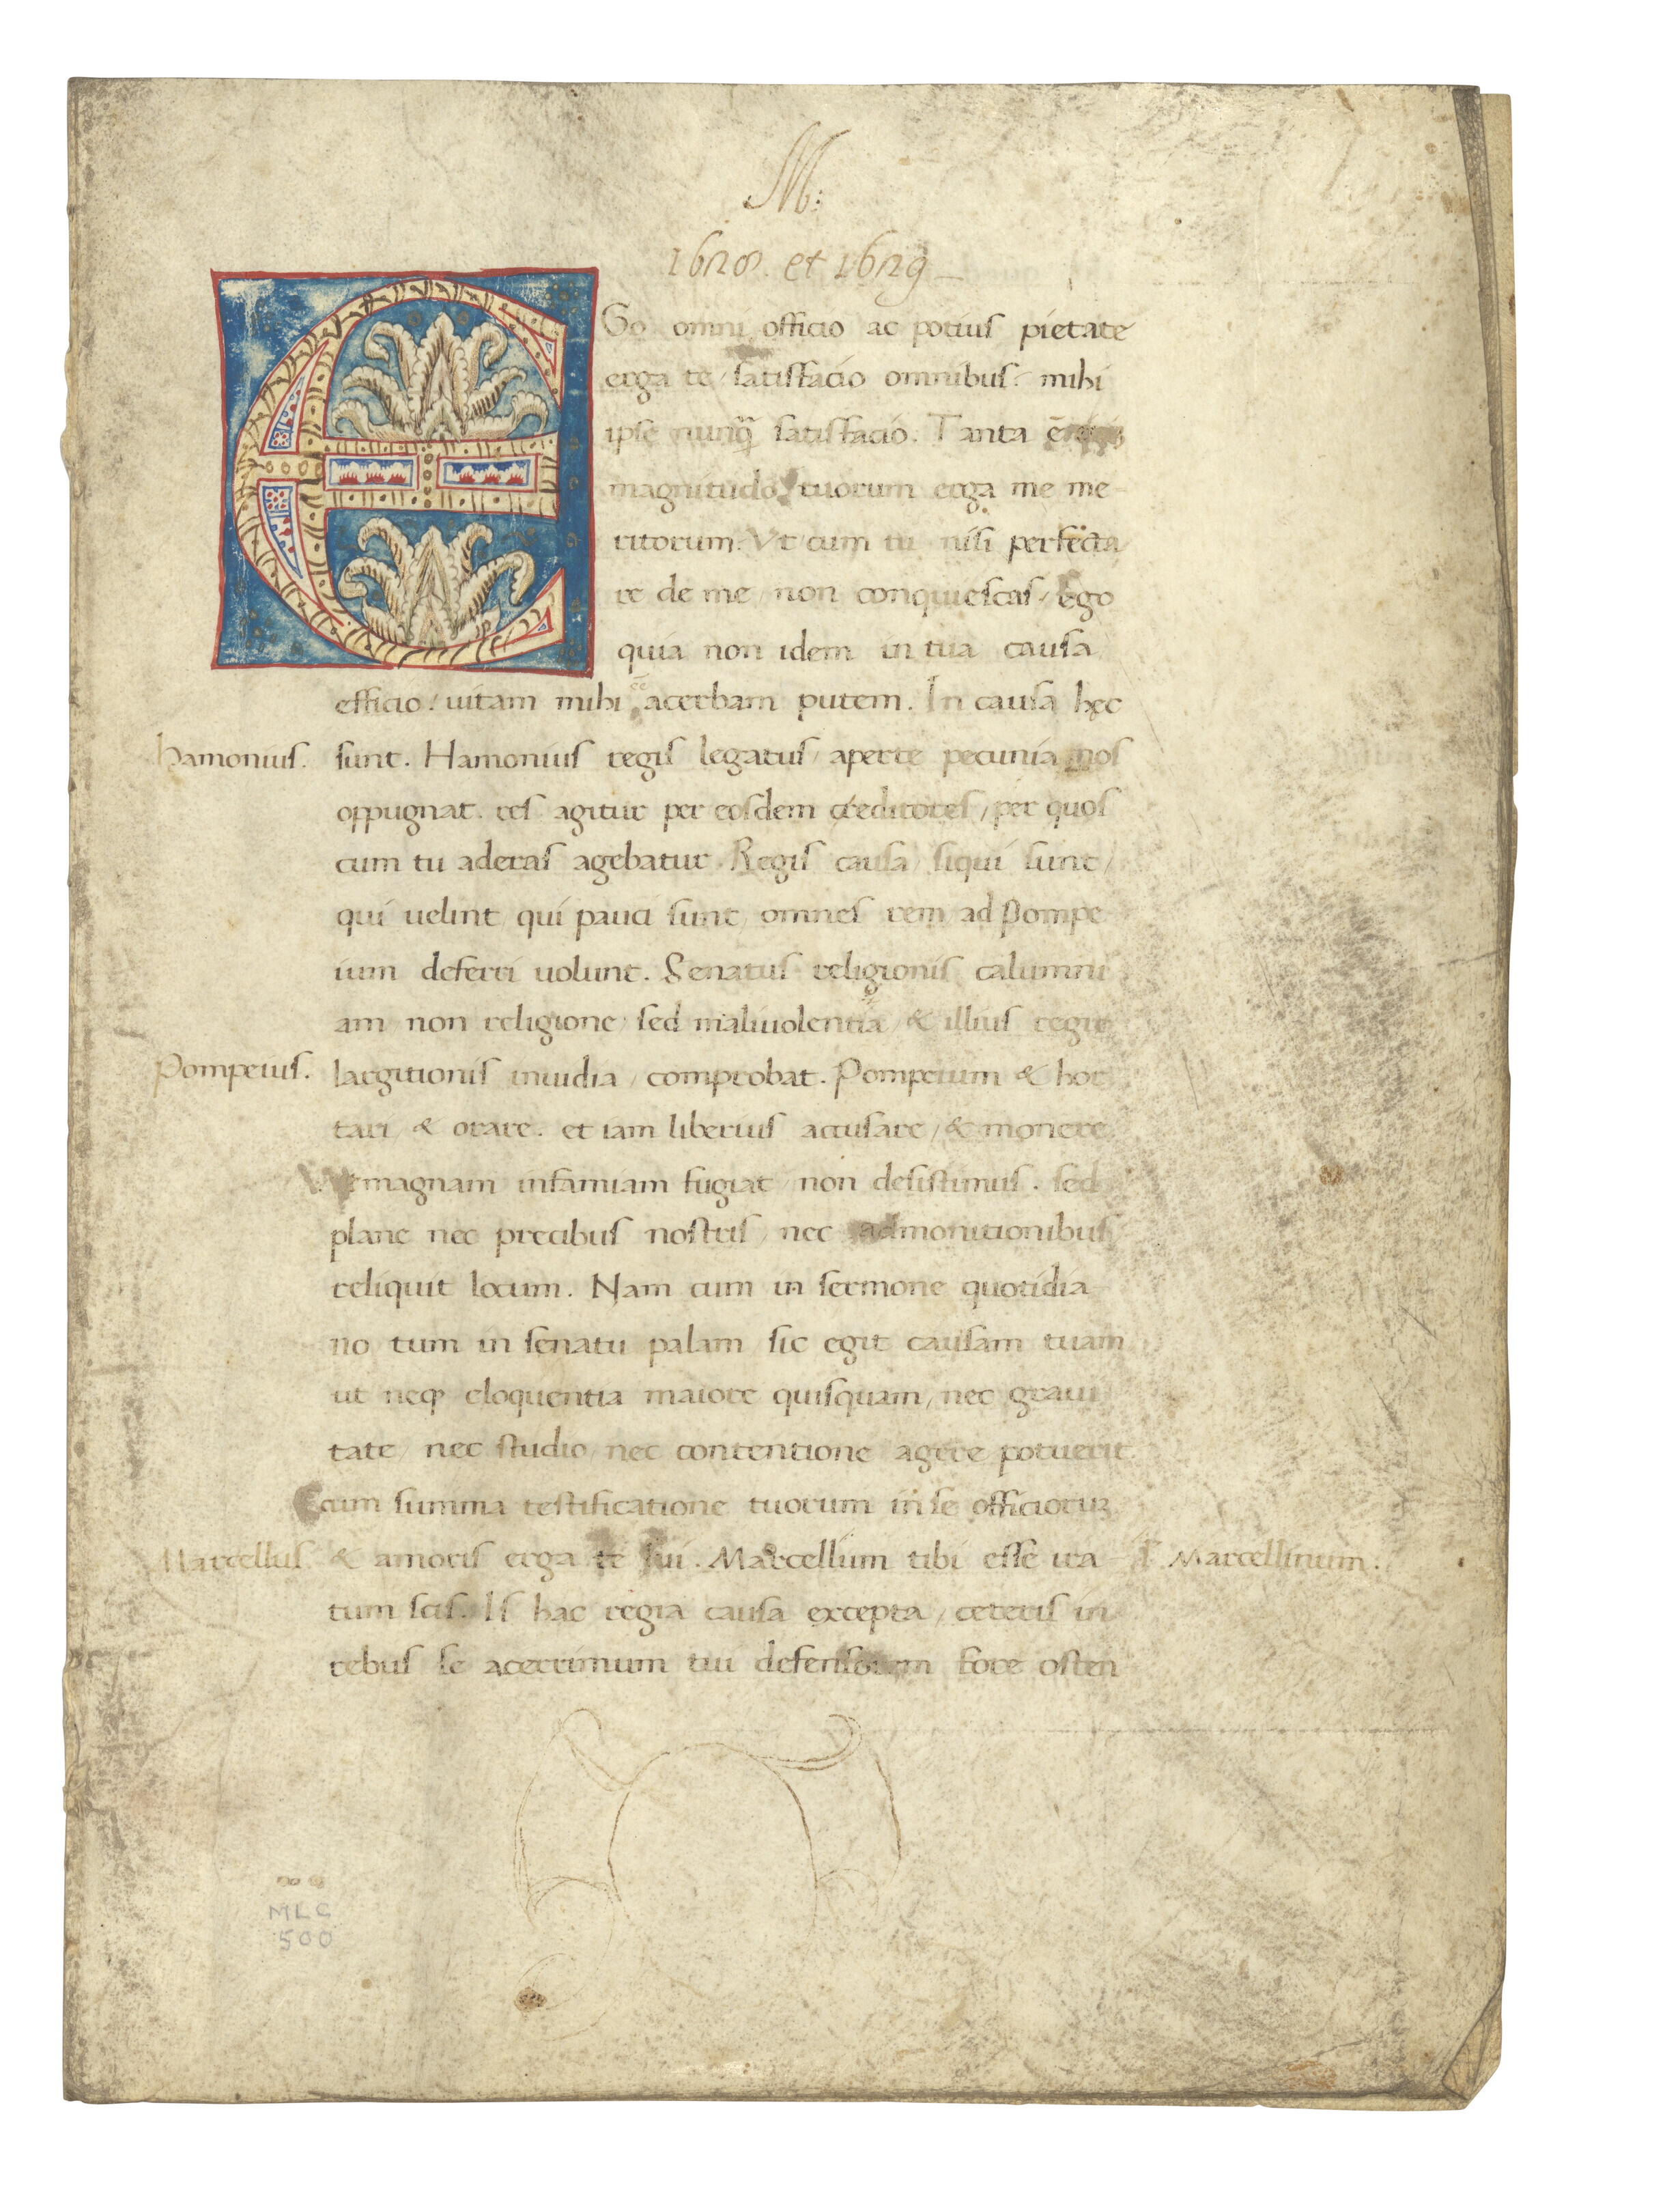 M:
1628. et 1629
EGo omni officio ac potius pietate
erga te / satisfacio omnibus. mihi
ipse nunq̄ satisfacio. Tanta ē
magnitudo tuorum erga me me
ritorum. Vt cum tu nisi perfecta
re de me / non conquiescas / Ego
quia non idem in tua causa
efficio / uitam mihi eē acerbam putem. In causa hęc
Hamonius.
sunt. Hamonius regis legatus / aperte pecunia nos
oppugnat. res agitur per eosdem creditores / per quos
cum tu aderas agebatur. Regis causa / siqui sunt /
qui uelint qui pauci sunt / omnes rem ad Pompe
ium deferri uolunt. Senatus religionis calumni
am non religione sed maliuolentia / & illius regie
Pompeius.
largitionis inuidia / comprobat. Pompeium & hor
tari / & orare. et iam liberius accusare / & monere
Vt magnam infamiam fugiat / non desistimus. sed
plane nec precibus nostris / nec admonitionibus
reliquit locum. Nam cum in sermone quotidia
no tum in senatu palam sic egit causam tuam
ut neq; eloquentia maiore quisquam / nec graui
tate / nec studio / nec contentione agere potuerit.
cum summa testificatione tuorum in se officioruʒ
Marcellus
& amoris erga te sui. Marcellum tibi esse ira
ł Marcellinum.
tum scis. Is hac regia causa excepta / ceteris in
rebus se acerrimum tui defensorem fore osten
MLC
500